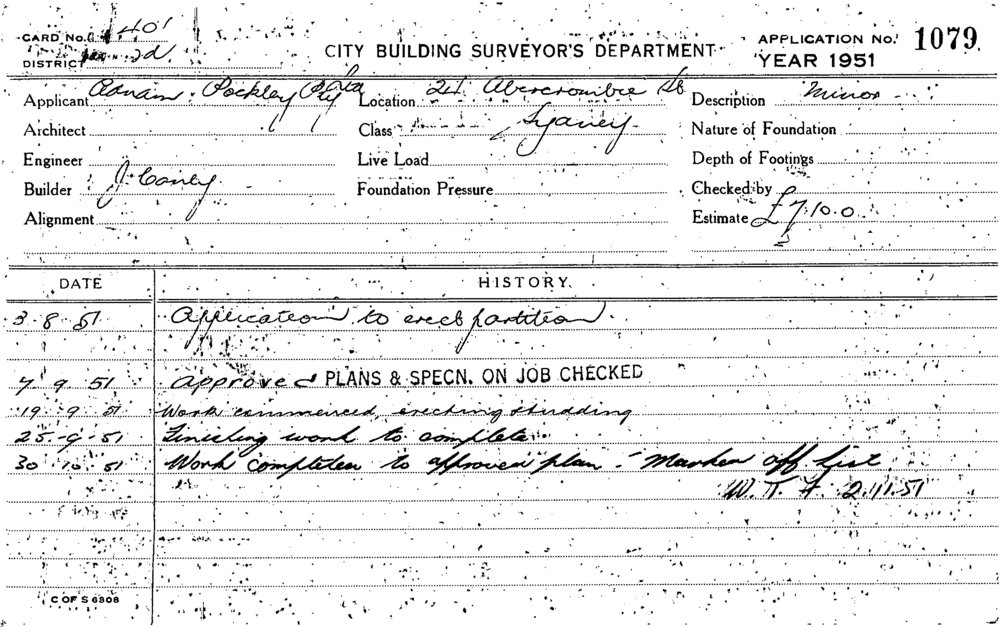 CARD No. 401
DISTRICT 2d
CITY BUILDING SURVEYOR'S DEPARTMENT
APPLICATION No. 1079
YEAR 1951
Applicant Adnam Pockley Pty Ltd
Location 24 Abercrombie St
Sydney
Description Minor
Architect
Class
Nature of Foundation
Engineer
Live Load
Depth of Footings
Builder J.
Foundation Pressure
Checked by
Alignment
Estimate £7.10.0
DATE HISTORY.
3.8.51 Application to erect partition.
7 9 51 Approved PLANS & SPECN. ON JOB CHECKED
19 9 51 Work commenced, erecting studding
25-9-51 Finishing work to complete
30 10 51 Work completed to approved plan. Marked off list
W. T. F. 2.11.51
C OF S 6806